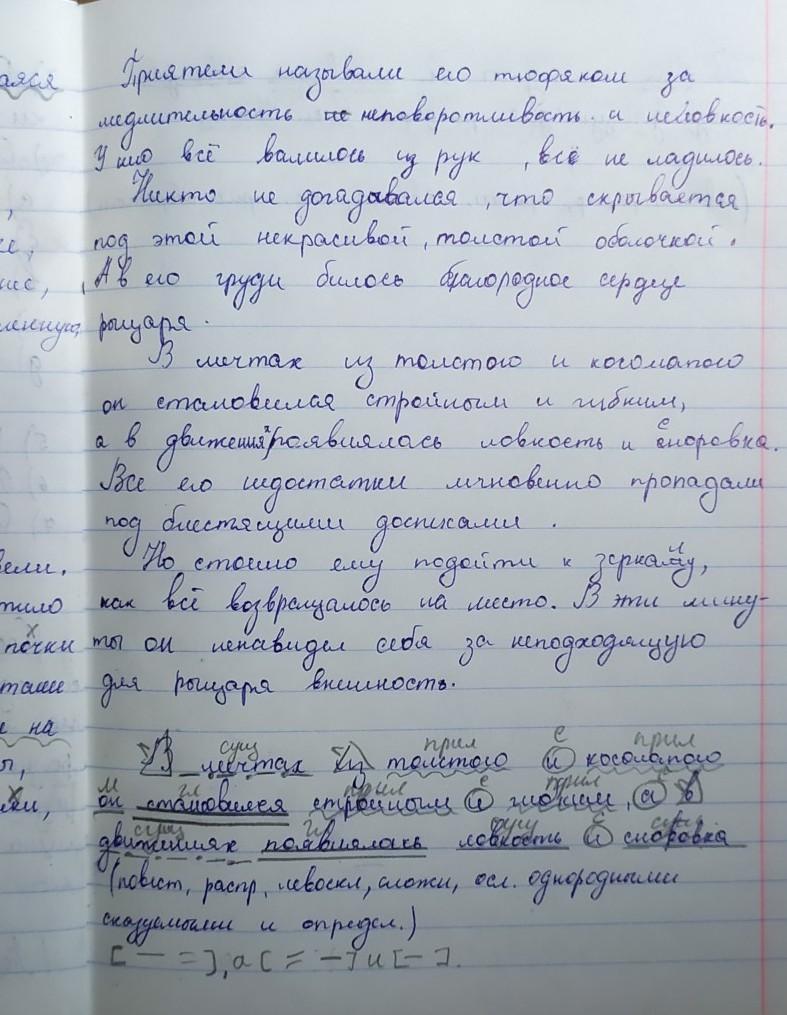 аяся
Приятели называли его тюфяком за
медлительность не неповоротливость и неловкость.
У него всё валилось из рук, всё не ладилось.
Никто не догадывался, что скрывается
под этой некрасивой, толстой оболочкой.
А в его груди билось благородное сердце
рыцаря.
В мечтах из толстого и косолапого
он становился стройным и гибким,
а в движениях появлялась ловкость и сноровка.
Все его недостатки мгновенно пропадали
под блестящими доспехами.
вели. Но стоило ему подойти к зеркалу,
как всё возвращалось на место. В эти мину-
почки ты он ненавидел себя за неподходящую
для рыцаря внешность.
на
сущ прил с прил
В мечтах из толстого и косолапого
м гл прил с прил
он становился стройным и гибким, а в
сущ гл сущ с сущ
движениях появлялась ловкость и сноровка
(повест, распр, невоскл, сложн, осл. однородными
сказуемыми и определ.)
[— =], а [= —] и [—].